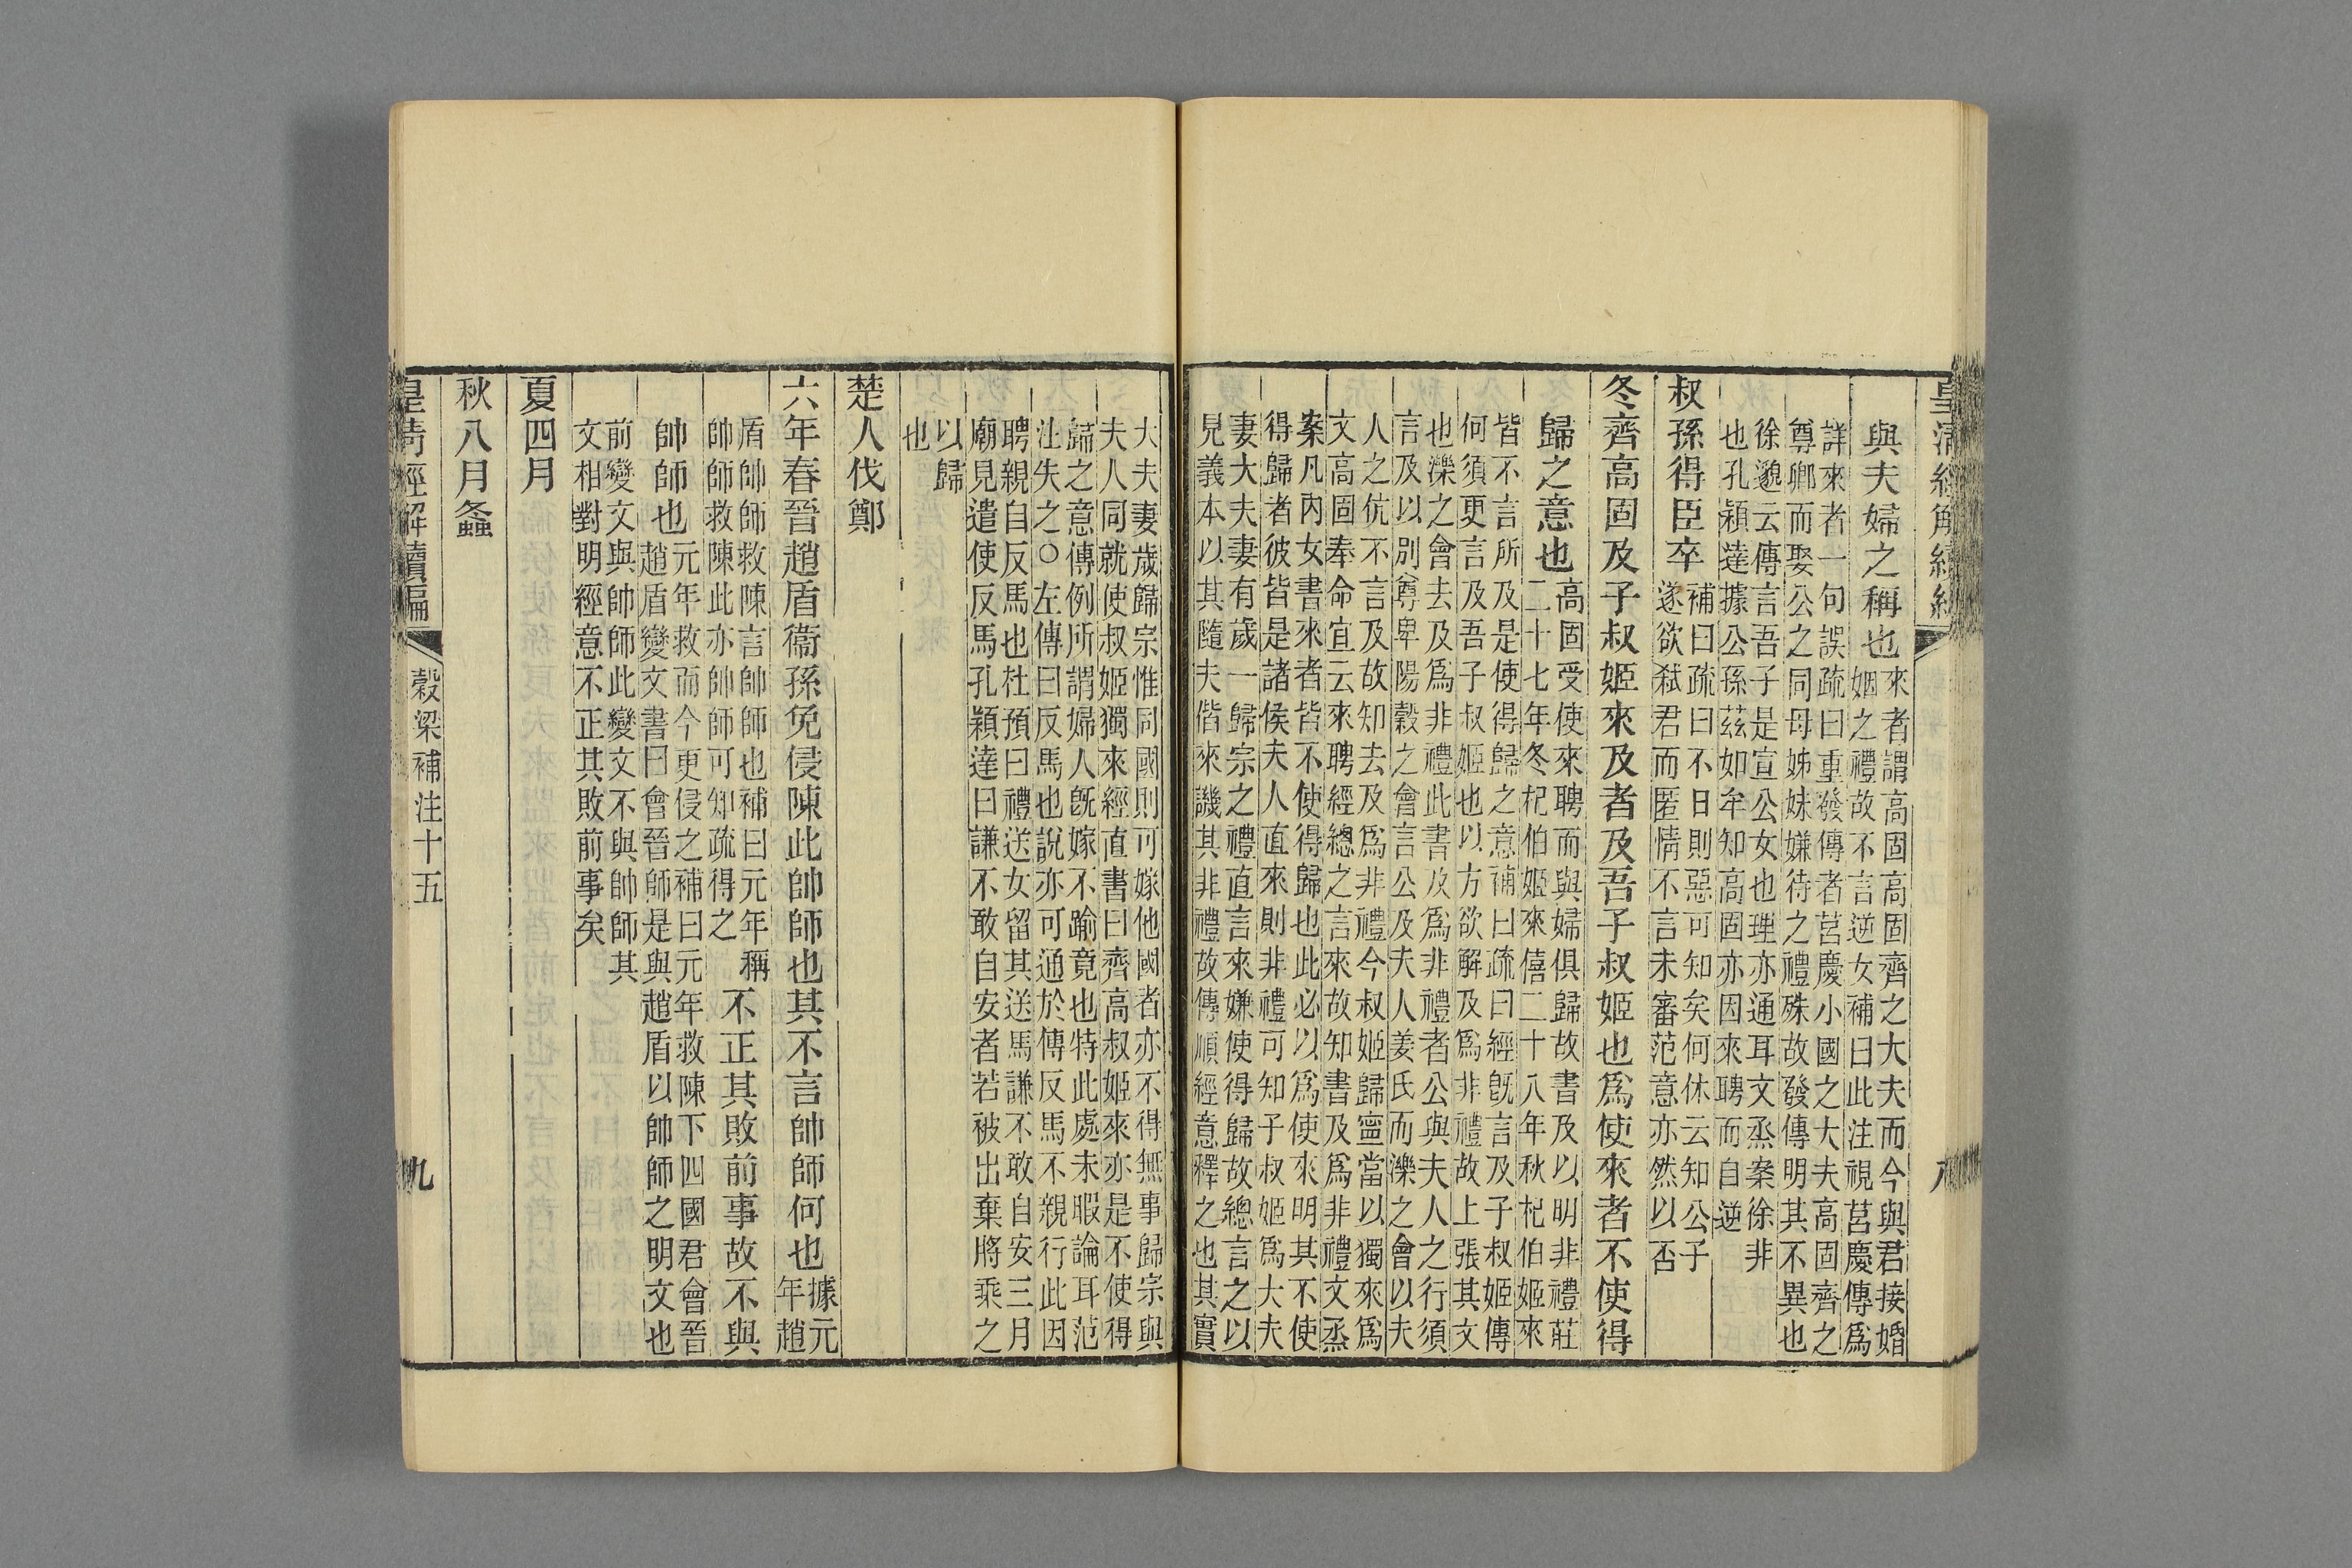 皇清經解續編
八
與夫婦之稱也來者謂高固高固齊之大夫而今與君接婚
姻之禮故不言逆女補曰此注視莒慶傳爲
詳來者一句誤疏曰重發傳者莒慶小國之大夫高固齊之
尊卿而娶公之同母姊妹嫌待之禮殊故發傳明其不異也
徐邈云傳言吾子是宣公女也理亦通耳文烝案徐非
也孔穎達據公孫茲如牟知高固亦因來聘而自逆
叔孫得臣卒補曰疏曰不日則惡可知矣何休云知公子
遂欲弑君而匿情不言未審范意亦然以否
冬齊高固及子叔姬來及者及吾子叔姬也爲使來者不使得
歸之意也高固受使來聘而與婦俱歸故書及以明非禮莊
二十七年冬杞伯姬來僖二十八年秋杞伯姬來
皆不言所及是使得歸之意補曰疏曰經旣言及子叔姬傳
何須更言及吾子叔姬也以方欲解及爲非禮故上張其文
也濼之會去及爲非禮此書及爲非禮者公與夫人之行須
言及以別尊卑陽穀之會言公及夫人姜氏而濼之會以夫
人之伉不言及故知去及爲非禮今叔姬歸寧當以獨來爲
文高固奉命宜云來聘經總之言來故知書及爲非禮文烝
案凡內女書來者皆不使得歸也此必以爲使來明其不使
得歸者彼皆是諸侯夫人直來則非禮可知子叔姬爲大夫
妻大夫妻有歲一歸宗之禮直言來嫌使得歸故總言之以
見義本以其隨夫偕來譏其非禮故傳順經意釋之也其實
大夫妻歲歸宗惟同國則可嫁他國者亦不得無事歸宗與
夫人同就使叔姬獨來經直書曰齊高叔姬來亦是不使得
歸之意傳例所謂婦人旣嫁不踰竟也特此處未暇論耳范
注失之○左傳曰反馬也說亦可通於傳反馬不親行此因
聘親自反馬也杜預曰禮送女留其送馬謙不敢自安三月
廟見遣使反馬孔穎達曰謙不敢自安者若被出棄將乘之
以歸
也
楚人伐鄭
六年春晉趙盾衞孫免侵陳此帥師也其不言帥師何也據元
年趙
盾帥師救陳言帥師也補曰元年稱
帥師救陳此亦帥師可知疏得之不正其敗前事故不與
帥師也元年救而今更侵之補曰元年救陳下四國君會晉
趙盾變文書曰會晉師是與趙盾以帥師之明文也
前變文與帥師此變文不與帥師其
文相對明經意不正其敗前事矣
夏四月
秋八月螽
皇清經解續編
穀梁補注十五
九